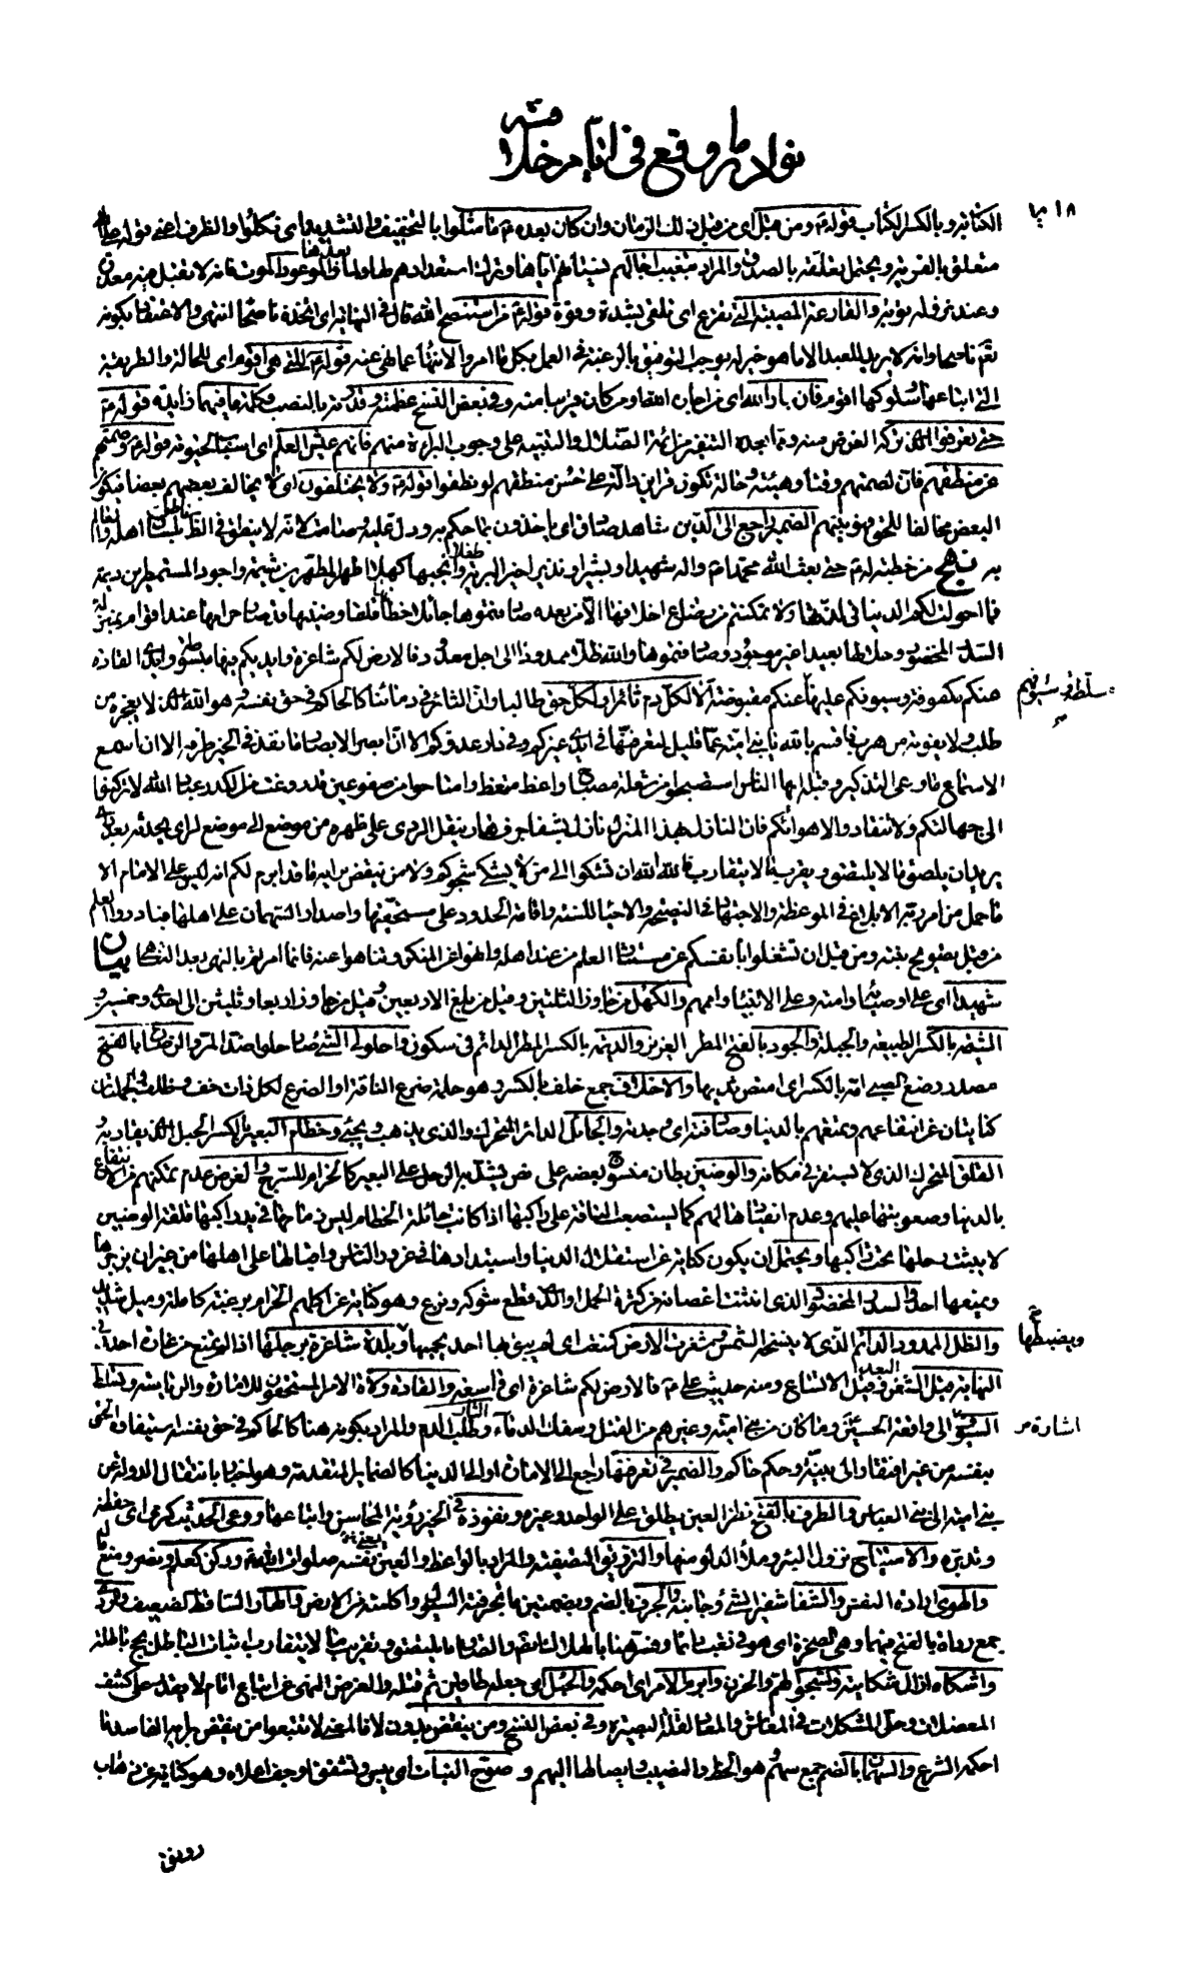 نوادر ما وقع في ايام خلافته
الكتابة وبالكسر الكتاب قوله ومن قبل اى من قبل ذلك الزمان وان كان بعده ما مثلوا بالتخفيف والتشديد اى نكلوا والظرف
متعلق بالفرية ويحتمل تعلقه بالصدق والمراد بتغيب اجالهم نسيانهم اياها وترك استعدادهم لها ولما بعدها والموعود الموت فانه لا تقبل فيه معذرة
وعند نزوله توبة والقارعة المصيبة التي تقرع اى تلقى بشدة وقوة قوله من استنصح الله قال في النهاية اى اتخذه ناصحا انتهى والاعتقاد بكونه
تعالى ناصحا وانه لا يريد للعبد الا ما هو خير له يوجب التوفيق بالرغبة في العمل بكل ما امر والانتهاء عما نهى عنه قوله للتي هي اقوم اى للحالة والطريقة
التي اتباعها وسلوكها اقوم فان جار الله اى من اجاره الله او من كان قريبا منه وفي بعض النسخ عظمته وقدرته بالنصب وكلمة ما فيهما زايدة قوله
حتى تعرفوا الذي تركه الغرض منه ومما بعده التنفير من ائمة الضلال والتنبيه على وجوب البراءة منهم فانهم عيش العلم اى اسباب لحيوته قوله وصمتهم
عن منطقهم فان لصمتهم وقتا وهيئة وحالة تكون قراين دالة على حسن منطقهم لو نطقوا قوله ولا يختلفون اى لا يخالف بعضهم بعضا فيكون
البعض مخالفا للحق فهو بينهم الضمير راجع الى الدين شاهد صادق اى ياخذون بما حكم به ودل عليه وصامت لانه لا ينطق في الظاهر
به نهج من خطبة له حتى بعث الله محمدا شهيدا وبشيرا ونذيرا خير البرية طفلا وانجبها كهلا اطهر المطهرين شيمة واجود المستمطرين ديمة
فما احلولت لكم الدنيا في لذتها ولا تمكنتم من رضاع اخلافها الا من بعده صادفتموها جائلا خطامها قلقا وضينها قد صار حرامها عند اقوام بمنزلة
السدر المخضود وحلالها بعيدا غير موجود وصادفتموها والله ظلا ممدودا الى اجل معدود فالارض لكم شاغرة وايديكم فيها مبسوطة وايدى القادة
عنكم مكفوفة وسيوفكم عليهم مسلطة وسيوفهم عنكم مقبوضة الا لكل دم ثائرا ولكل حق طالبا وان الثائر في دمائنا كالحاكم في حق نفسه وهو الله الذي لا يعجزه من
طلب ولا يفوته من هرب فاقسم بالله يا بني امية عما قليل لتعرفنها في ايدى غيركم وفي دار عدوكم الا ان ابصر الابصار ما نفذ في الخير طرفه الا ان اسمع
الاسماع ما وعى التذكير وقبله ايها الناس استصبحوا من شعلة مصباح واعظ متعظ وامتاحوا من صفو عين قد روقت من الكدر عباد الله لا تركنوا
الى جهالتكم ولا تنقادوا لاهوائكم فان النازل بهذا المنزل نازل بشفا جرف هار ينقل الردى على ظهره من موضع الى موضع لراى يحدثه بعد راى
يريد ان يلصق ما لا يلتصق ويقرب ما لا يتقارب فالله الله ان تشكوا الى من لا يشكى شجوكم ولا من ينقض برايه ما قد ابرم لكم انه ليس على الامام الا
ما حمل من امر ربه الابلاغ في الموعظة والاجتهاد في النصيحة والاحياء للسنة واقامة الحدود على مستحقيها واصدار السهمان على اهلها فبادروا العلم
من قبل تصويح نبته ومن قبل ان تشغلوا بانفسكم عن مستثار العلم من عند اهله وانهوا عن المنكر وتناهوا عنه فانما امرتم بالنهى بعد التناهى بيان
شهيدا اى على اوصيائه وامته وعلى الانبياء واممهم والكهل من جاوز الثلثين وقيل من بلغ الاربعين وقيل من جاوز اربعا وثلثين الى احدى وخمسين و
الشيمة بالكسر الطبيعة والجبلة والجود بالفتح المطر الغزير والديمة بالكسر المطر الدائم في سكون واحلولى الشئ صار حلوا ضد المر والرضاع بالفتح
مصدر رضع الصبي امه بالكسر اى امتص ثديها والاخلاف جمع خلف بالكسر وهو حلمة ضرع الناقة او الضرع لكل ذات خف وظلف والجملتان
كنايتان عن انتفاعهم وتمتعهم بالدنيا وصادفته اى وجدته والجائل الدائر المتحرك والذي يذهب ويجئ وخطام البعير بالكسر الحبل الذي يقاد به و
القلق المتحرك الذي لا يستقر في مكانه والوضين بطان منسوج بعضه على بعض يشد به الرحل على البعير كالحزام للسرج والغرض عدم تمكنهم من الانتفاع
بالدنيا وصعوبتها عليهم وعدم انقيادها لهم كما يستصعب الناقة على راكبها اذا كانت جائلة الخطام ليس زمامها في يد راكبها قلقة الوضين
لا يثبت رحلها تحت راكبها ويحتمل ان يكون كناية عن استقلال الدنيا واستبدادها في غرور الناس واقبالها على اهلها من غير ان يزجرها
ويمنعها احد والسدر المخضود الذي انثنت اغصانه من كثرة الحمل او الذي قطع شوكه ونزع وهو كناية عن اكلهم الحرام برغبة كاملة وميل شديد
والظل الممدود الدائم الذي لا ينسخه الشمس وشغرت الارض كمنعت اى لم يبق بها احد يحميها ويضبطها وبلدة شاغرة برجلها اذا لم تمتنع من غارة احد في
النهاية قيل الشغر البعد وقيل الاتساع ومنه حديث علي فالارض لكم شاغرة اى واسعة والقادة ولاة الامر المستحقون للامارة والرياسة وتسلط
السيوف اشارة الى واقعة الحسين وما كان من بني امية وغيرهم من القتل وسفك الدماء والثار طلب الدم والمراد بكونه هنا كالحاكم في حق نفسه استيفاؤه الحق
بنفسه من غير افتقار الى بينة وحكم حاكم والضمير في تعرفنها راجع الى الامارة او الى الدنيا كالضماير المتقدمة وهو اخبار بانتقال الدولة عن
بني امية الى بني العباس والطرف بالفتح نظر العين يطلق على الواحد وغيره ونفوذه في الخير رؤية المحاسن واتباعها ووعى الحديث كرمى اى حفظه
وتدبره والامتياح نزول البئر وملأ الدلو منها والترويق التصفية والمراد بالواعظ والعين نفسه صلوات الله عليه وركن كعلم ونصر ومنع مال
والهوى ارادة النفس والشفا شفير الشئ وجانبه والجرف بالضم وبضمتين ما تجرفته السيول واكلته من الارض والهار الساقط الضعيف والردى
جمع رداة بالفتح فيهما وهي الصخرة
واشكاه ازال شكايته والشجو الهم والحزن وابرم الامر اى احكمه والحبل اى جعله طاقين ثم فتله والغرض النهى عن اتباع امام لا يقدر على كشف
المعضلات وحل المشكلات في المعاش والمعاد لقلة البصيرة وفي بعض النسخ ومن ينقض بدون لا فالمعنى لا تتبعوا من ينقض برايه الفاسد ما
احكمه الشرع والسهمان بالضم جمع سهم هو الحظ والنصيب وايصالها اليهم وصوح النبات اى يبس وتشقق او جف اعلاه وهو كناية عن ذهاب
رونق